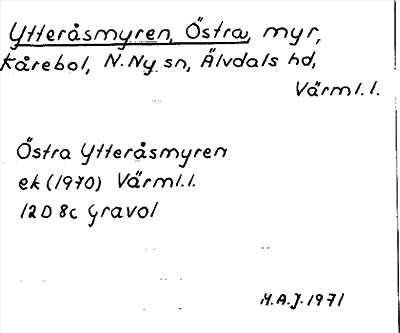 Ytteråsmyren, Östra, myr,
Kårebol, N. Ny sn, Älvdals hd,
Värml. l.
Östra Ytteråsmyren
ek (1970) Värml. l.
12 D 8c Gravol
M.A.J. 1971